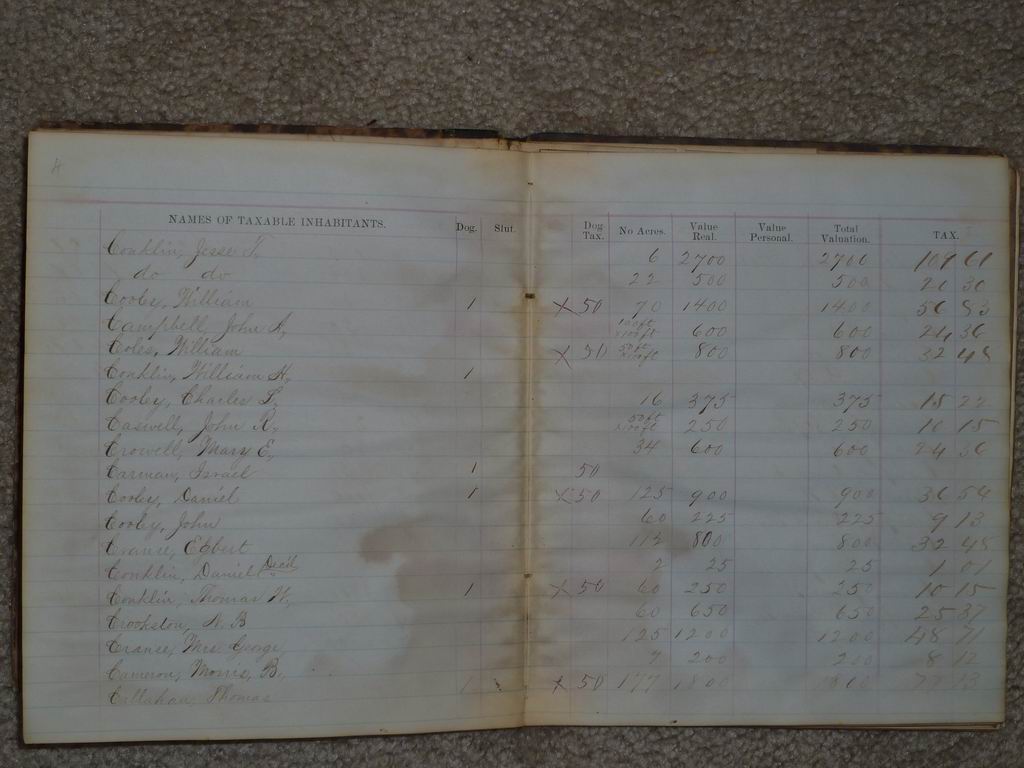 4
NAMES OF TAXABLE INHABITANTS. Dog. Slut. Dog Tax. No Acres. Value Real. Value Personal. Total Valuation. TAX.
Conklin, Jesse T. 6 2700 2700 109 61
do do 22 500 500 20 30
Cooley, William 1 X 50 70 1400 1400 56 83
Campbell, John A, 100ft x100ft 600 600 24 36
Coles, William X 50 800 800 32 48
Conklin, William H, 1
Cooley, Charles T, 16 375 375 15 22
Caswell, John R, 50ft x100ft 250 250 10 15
Crowell, Mary E, 34 600 600 24 36
Carman, Israel 1 50
Cooley, Daniel 1 X 50 125 900 900 36 54
Cooley, John 60 225 225 9 13
Cranse, Egbert 113 800 800 32 48
Conklin, Daniel Dec'd 2 25 25 1 01
Conklin, Thomas W, 1 X 50 60 250 250 10 15
Crookston, N. B 60 650 650 25 37
Cranse, Mrs George, 125 1200 1200 48 71
Cameron, Morris, B, 7 200 200 8 12
Callahan, Thomas 1 X 50 177 1800 1800